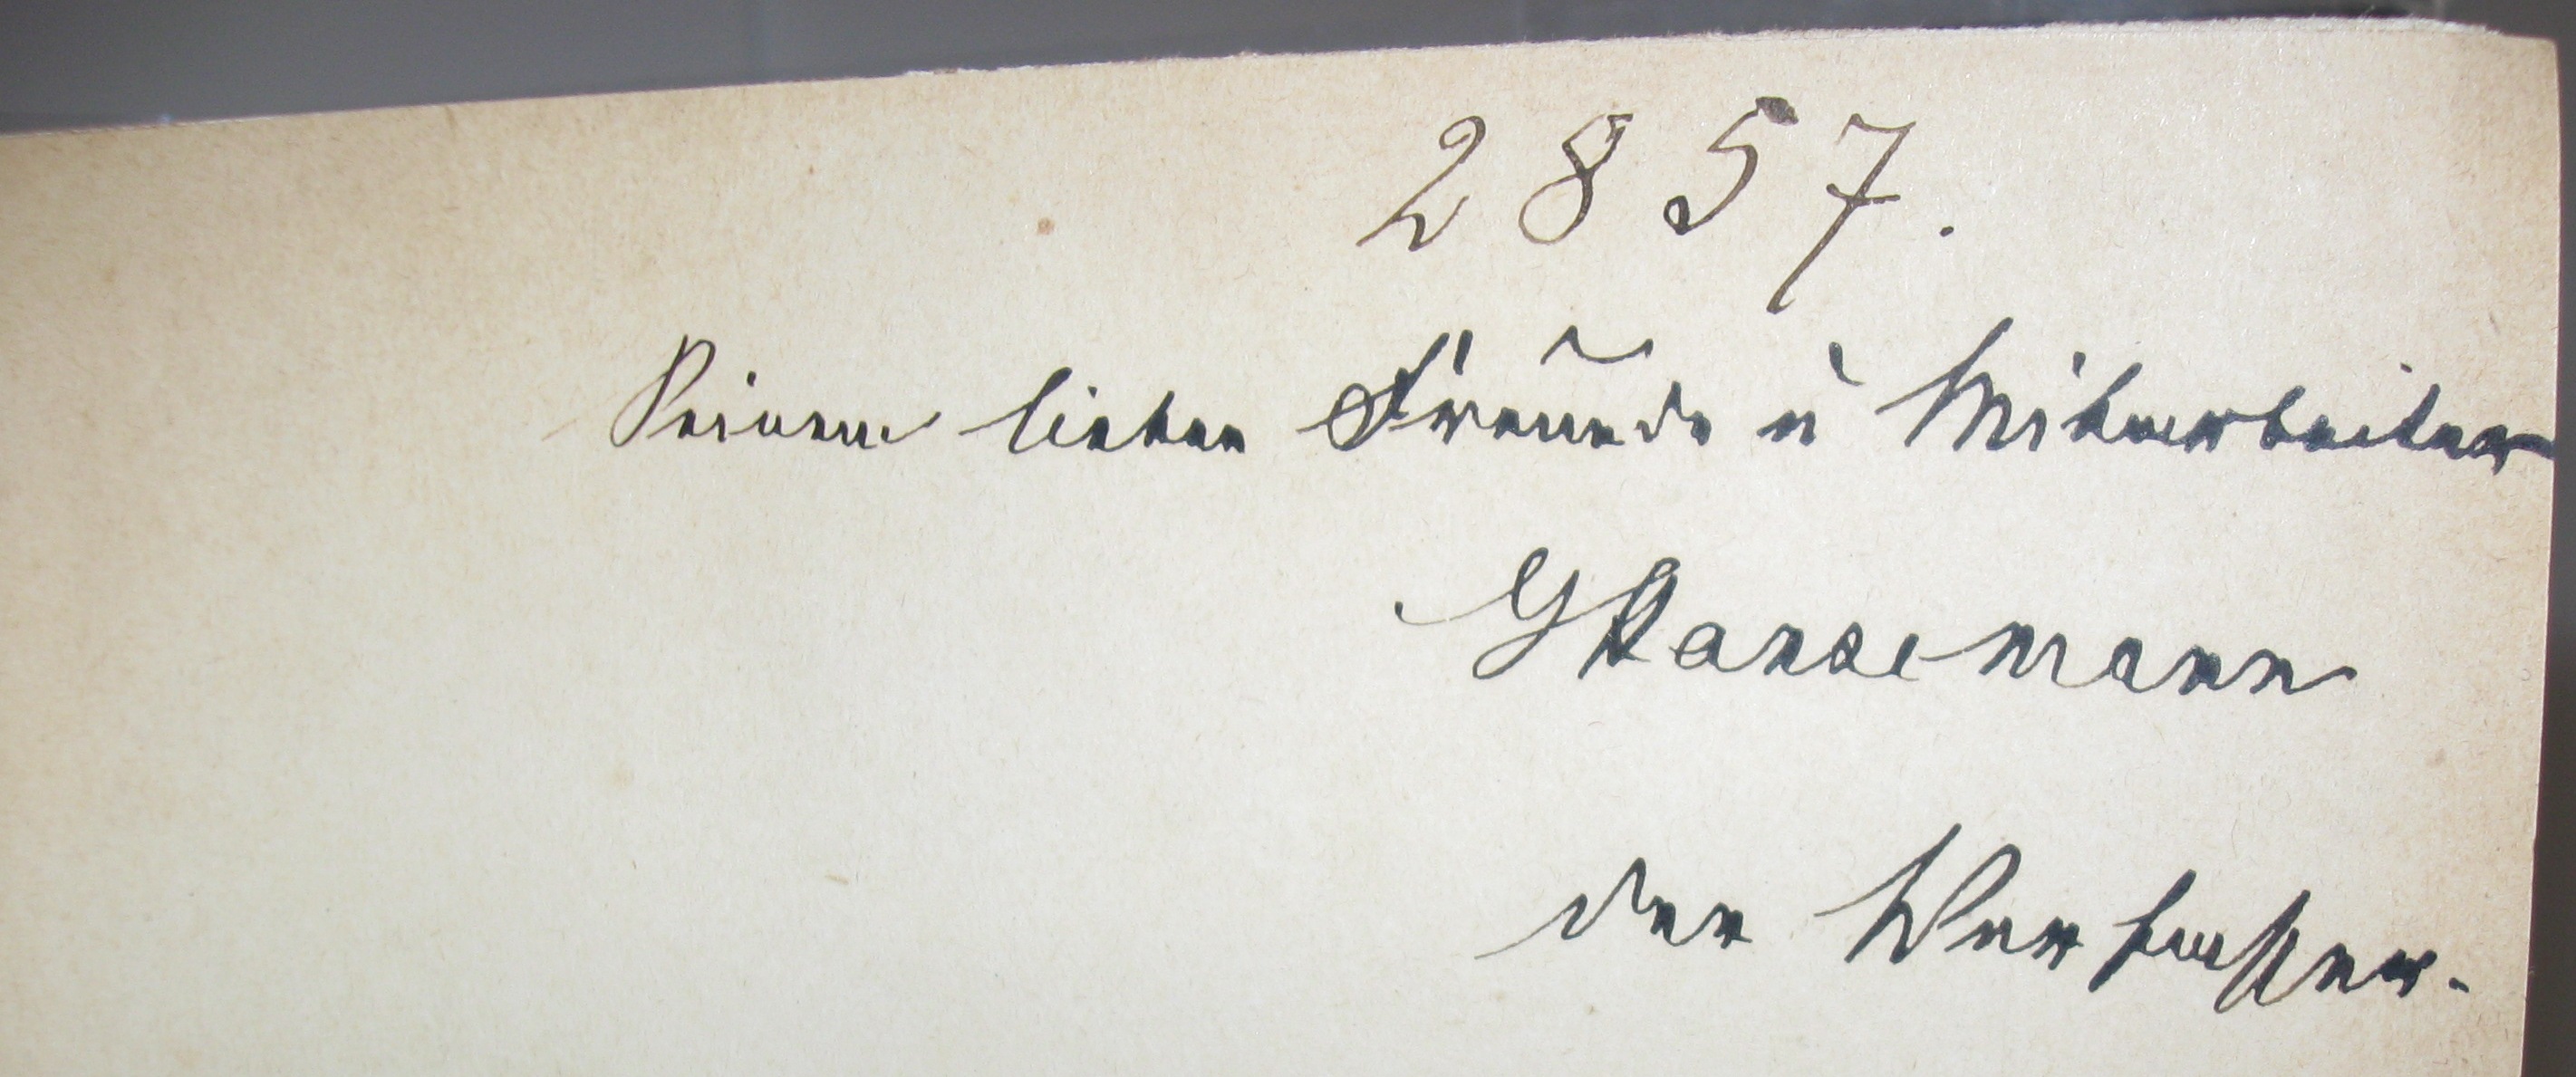 2857.
Seinem lieben Freunde u Mitarbeiter
G Hansemann
der Verfasser.